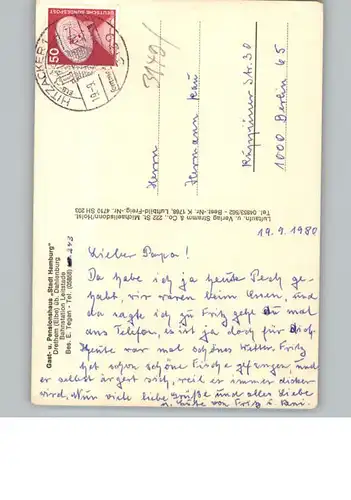 DEUTSCHE BUNDESPOST
50
HITZACKER 1
19.9.
Herrn
Hermann
Ruppiner Str. 30
1000 Berlin 65
Luftaufn. u. Verlag Stramm & Co., 222 St. Michaelisdonn/Holst.
Tel. 04853/562 - Best.-Nr. K 1768, Luftbild-Freig.-Nr. 4710 SH 203
Gast- u. Pensionshaus „Stadt Hamburg"
Drethem (Elbe) üb. Dahlenburg
Bahnstation Leitstade
Bes. E. Tegen · Tel. (05858) 243
19.9.1980
Lieber Papa!
Da habe ich ja heute Pech ge-
habt, wir waren beim Essen, und
da sagte ich zu Fritz geh du mal
ans Telefon, es ist ja doch für dich.
Heute war mal schönes Wetter. Fritz
hat schon schöne Fische gefangen, und
er selbst ärgert sich, weil er immer dicker
wird. Nun viele liebe Grüße und alles Liebe
u. Gute von Fritz u.